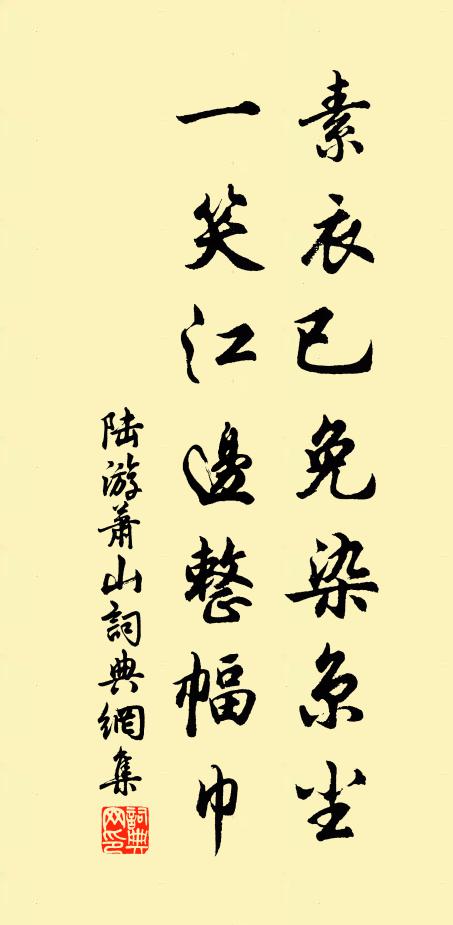 素衣已免染京尘
一笑江邊整幅巾
陆游蕭山詞典網集
詞典网印